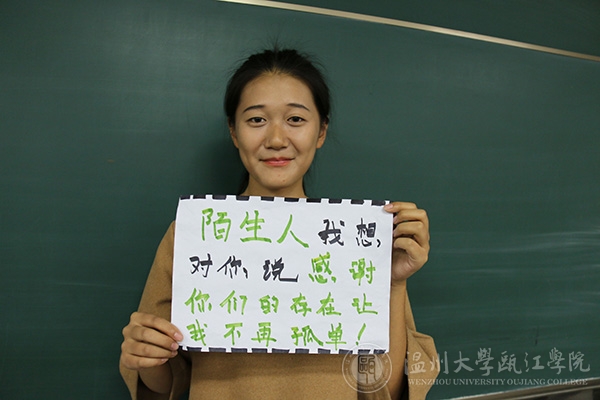 陌生人我想,
对你,说感谢
你们的存在让
我不再孤单!
温州大学瓯江学院
WENZHOU UNIVERSITY OUJIANG COLLEGE